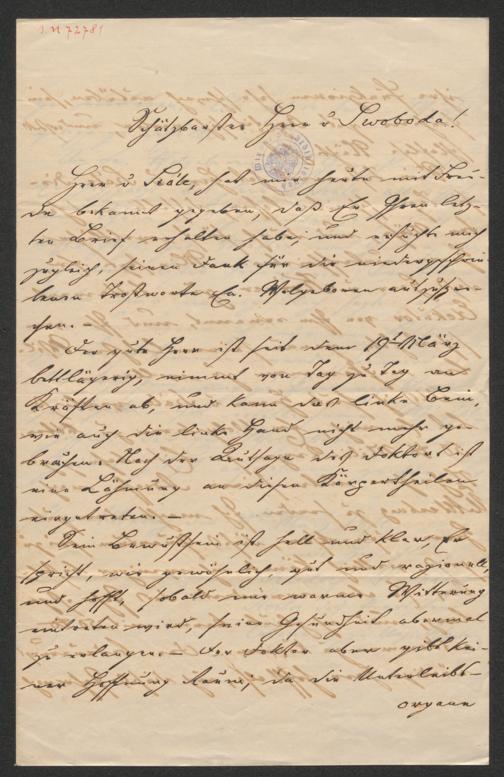 I.N 72781
Schätzbarster Herr v Swoboda!
Herr v Seõle, hat mir heute mit Freu-
de bekannt gegeben, daß Er Ihren letz-
ten Brief erhalten habe, und ersucht mich
zugleich, seinen Dank für die niedergeschrie-
benen Trostworte Ea. Wolgeboren auszuspre-
chen. –
Der gute Herr ist seit dem 19t März
bettlägerig, nimmt von Tag zu Tag an
Kräften ab, und kann das linke Bein,
wie auch die linke Hand nicht mehr ge-
brauchen. Nach der Aussage des Doktors ist
eine Lähmung an diesen Körpertheilen
eingetreten. –
Sein Bewußtsein ist hell und klar, Er
spricht, wie gewöhnlich, gut und
und hofft, sobald nur warme Witterung
eintreten wird, seine Gesundheit abermal
zu erlangen. – Der Doktor aber gibt kei-
ner Hoffnung Raum; da die Unterleibs-
organe